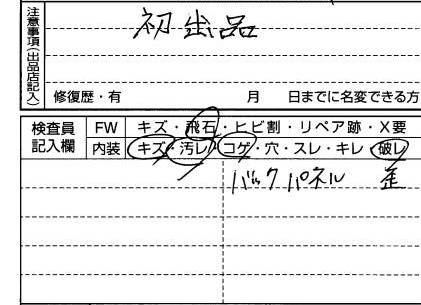 注意事項(出品店記入)
初出品
修復歴・有 月 日までに名変できる方
検査員記入欄 FW キズ・飛石・ヒビ割・リペア跡・X要
内装 キズ・汚レ・コゲ・穴・スレ・キレ・破レ
バックパネル 歪